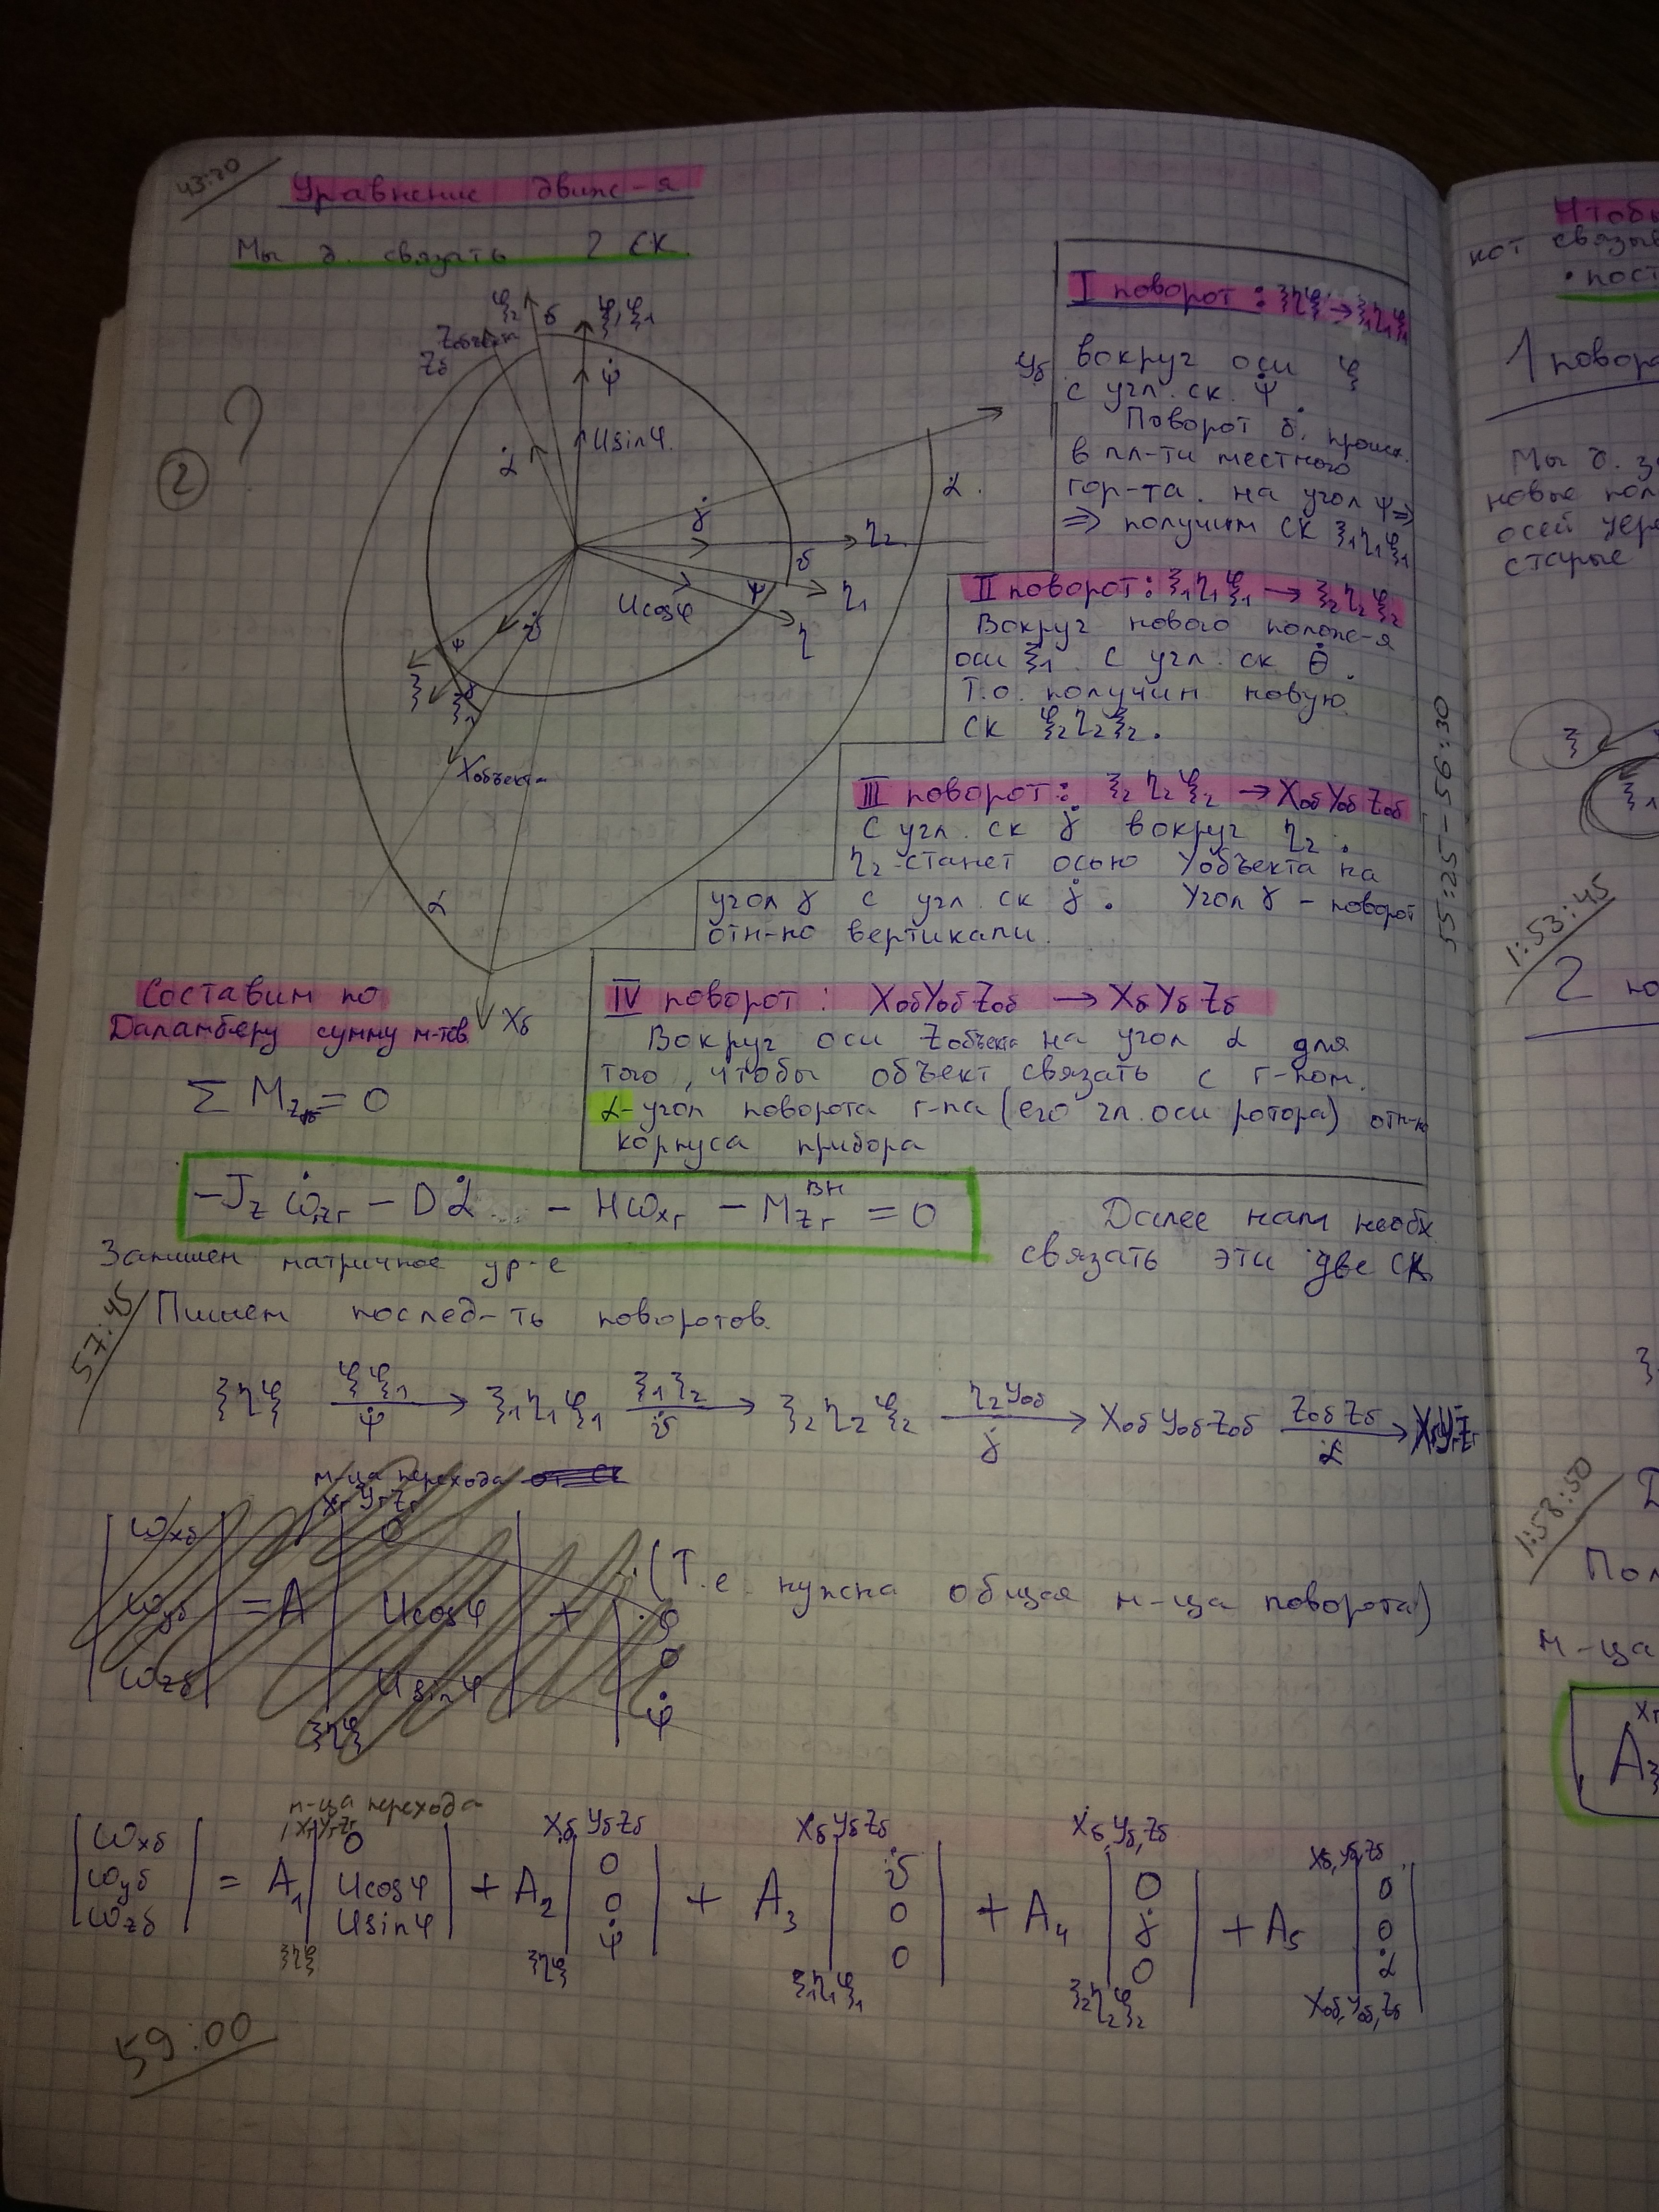 43:20
Уравнение движ-я
Мы д. связать 2 СК.
?
2
ζ₂
δ
ζ, ζ₁
Zобъекта
Zб
ψ̇
Usinφ
α̇
Yб
γ̇
α.
η₂
ϑ
ψ
η₁
Ucosφ
η
ϑ̇
ψ
ξ
γ
ξ₁
Xобъекта
α
Xб
I поворот: ξηζ → ξ₁η₁ζ₁
вокруг оси ζ
с угл. ск. ψ̇.
Поворот б. происх.
в пл-ти местного
гор-та. на угол ψ ⇒
⇒ получим СК ξ₁η₁ζ₁
II поворот: ξ₁η₁ζ₁ → ξ₂η₂ζ₂
Вокруг нового полож-я
оси ξ₁. с угл. ск θ̇.
Т.о. получим новую
СК ξ₂η₂ζ₂.
55:25-56:30
III поворот: ξ₂η₂ζ₂ → XобYобZоб
С угл. ск γ̇ вокруг η₂.
η₂-станет осью Yобъекта на
угол γ с угл. ск γ̇. Угол γ - поворот
отн-но вертикали.
IV поворот: XобYобZоб → XбYбZб
Вокруг оси Zобъекта на угол α для
того, чтобы объект связать с г-пом.
α-угол поворота г-па (его гл. оси ротора) отн-но
корпуса прибора
Составим по
Даламберу сумму м-тов
-J_z ω̇_zг - Dα̇ - Hω_xг - M_zг^вн = 0
Далее нам необх.
связать эти две СК
Запишем матричное ур-е
57:45
Пишем послед-ть поворотов.
ξηζ —ζζ₁/ψ̇→ ξ₁η₁ζ₁ —ξ₁ξ₂/ϑ̇→ ξ₂η₂ζ₂ —η₂Yоб/γ̇→ XобYобZоб —ZобZб/α̇→ XгYгZг
м-ца перехода от СК
XгYгZг
ωxб 0
ωyб = A Ucosφ + 0
ωzб Usinφ 0
ψ̇
ξηζ
(Т.е. нужна общая м-ца поворота)
м-ца перехода
XгYгZг XбYбZб XбYбZб Xб,Yб,Zб Xб,Yб,Zб
ωxб 0 0 ϑ̇ 0 0
ωyб = A₁ Ucosφ + A₂ 0 + A₃ 0 + A₄ γ̇ + A₅ 0
ωzб Usinφ ψ̇ 0 0 α̇
ξηζ ξηζ ξ₁η₁ζ₁ ξ₂η₂ζ₂ Xоб,Yоб,Zб
59:00
Чтобы
кот связыв
1 поворо
Мы д. з
новые пол
осей чер
старые
ξ
ξ₁
1:53:45
2 по
1:58:50
Пол
м-ца
Xг
A